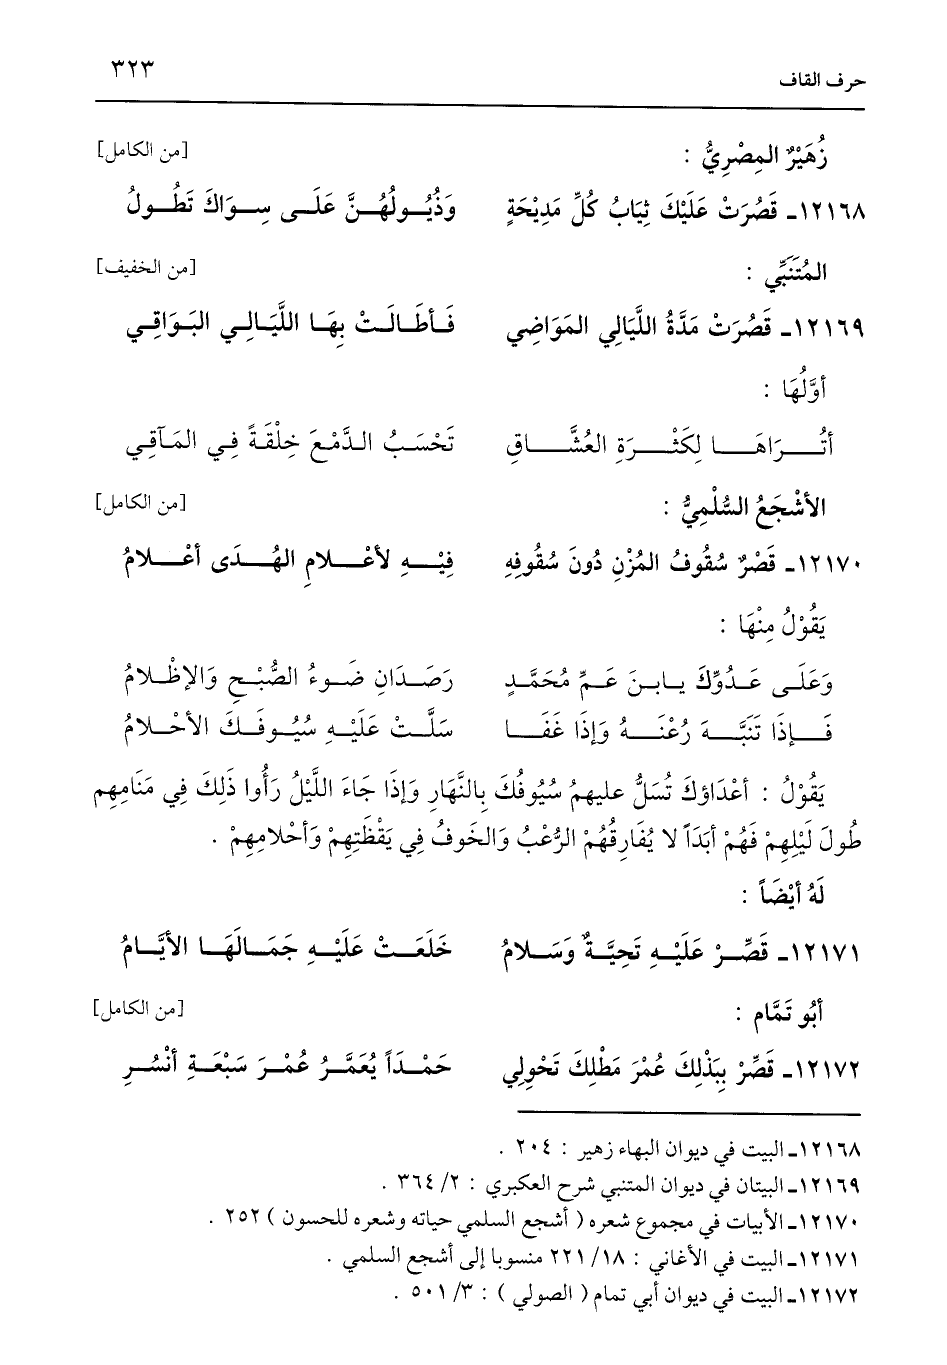 حرف القاف ٣٢٣
زُهَيْرٌ المِصْرِيُّ : [من الكامل]
١٢١٦٨ـ قَصُرَتْ عَلَيْكَ ثِيَابُ كُلِّ مَدِيْحَةٍ وَذُيُولُهُنَّ عَلَى سِوَاكَ تَطُولُ
المُتَنَبِّي : [من الخفيف]
١٢١٦٩ـ قَصُرَتْ مَدَّةُ اللَّيَالِي المَوَاضِي فَأطَالَتْ بِهَا اللَّيَالِي البَوَاقِي
أوَّلُهَا :
أتُرَاهَا لِكَثْرَةِ العُشَّاقِ تَحْسَبُ الدَّمْعَ خِلْقَةً فِي المَآقِي
الأشْجَعُ السُّلْمِيُّ : [من الكامل]
١٢١٧٠ـ قَصْرٌ سُقُوفُ المُزْنِ دُونَ سُقُوفِهِ فِيْهِ لأعْلامِ الهُدَى أعْلامُ
يَقُوْلُ مِنْهَا :
وَعَلَى عَدُوِّكَ يابنَ عَمِّ مُحَمَّدٍ رَصَدَانِ ضَوءُ الصُّبْحِ وَالإظْلامُ
فَإذَا تَنَبَّهَ رُعْتَهُ وَإذَا غَفَا سَلَّتْ عَلَيْهِ سُيُوفَكَ الأحْلامُ
يَقُوْلُ : أعْدَاؤكَ تُسَلُّ عليهمُ سُيُوفُكَ بِالنَّهَارِ وَإذَا جَاءَ اللَّيْلُ رَأوا ذَلِكَ فِي مَنَامِهِم
طُولَ لَيْلِهِمْ فَهُمْ أبَدَاً لا يُفَارِقُهُمْ الرُّعْبُ وَالخَوفُ فِي يَقْظَتِهِمْ وَأحْلامِهِمْ .
لَهُ أيْضَاً :
١٢١٧١ـ قَصِّرْ عَلَيْهِ تَحِيَّةٌ وَسَلامُ خَلَعَتْ عَلَيْهِ جَمَالَهَا الأيَّامُ
أبُو تَمَّام : [من الكامل]
١٢١٧٢ـ قَصِّرْ بِبَذْلِكَ عُمْرَ مَطْلِكَ تَحْوِلِي حَمْدَاً يُعَمَّرُ عُمْرَ سَبْعَةِ أنْسُرِ
١٢١٦٨ـ البيت في ديوان البهاء زهير : ٢٠٤ .
١٢١٦٩ـ البيتان في ديوان المتنبي شرح العكبري : ٢/ ٣٦٤ .
١٢١٧٠ـ الأبيات في مجموع شعره ( أشجع السلمي حياته وشعره للحسون ) ٢٥٢ .
١٢١٧١ـ البيت في الأغاني : ١٨/ ٢٢١ منسوبا إلى أشجع السلمي .
١٢١٧٢ـ البيت في ديوان أبي تمام ( الصولي ) : ٣/ ٥٠١ .